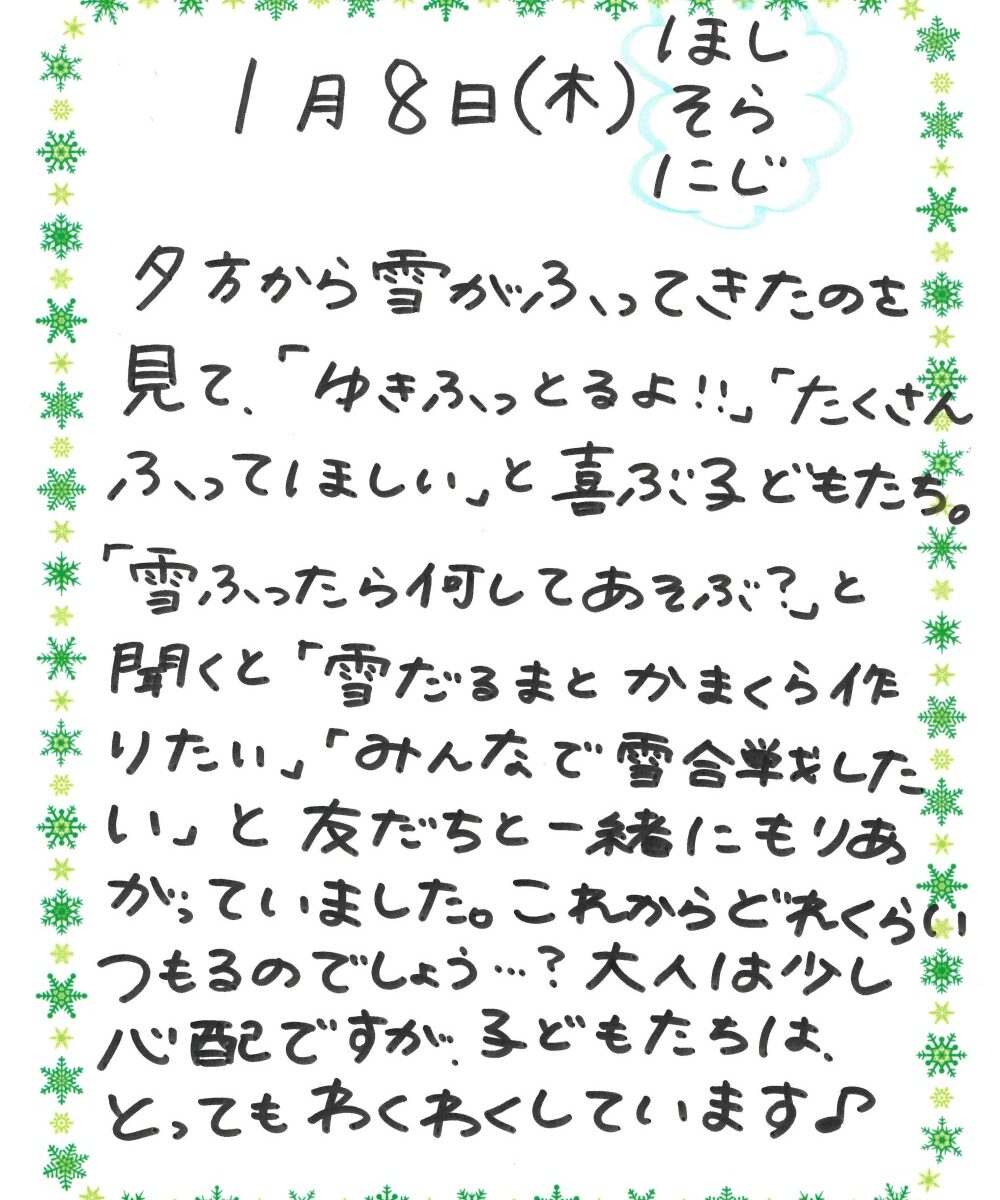 1月8日(木)
ほし
そら
にじ
夕方から雪がふってきたのを
見て、「ゆきふっとるよ!!」「たくさん
ふってほしい」と喜ぶ子どもたち。
「雪ふったら何してあそぶ?」と
聞くと「雪だるまとかまくら作
りたい」「みんなで雪合戦した
い」と友だちと一緒にもりあ
がっていました。これからどれくらい
つもるのでしょう…?大人は少し
心配ですが、子どもたちは、
とってもわくわくしています♪